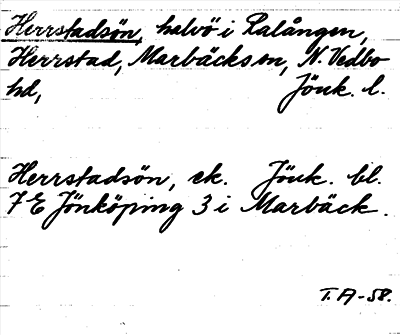 Herrstadsön, halvö i Ralången,
Herrstad, Marbäcks sn, N. Vedbo
hd, Jönk. l.
Herrstadsön, ek. Jönk. bl.
7 E Jönköping 3 i Marbäck.
T. A-58.